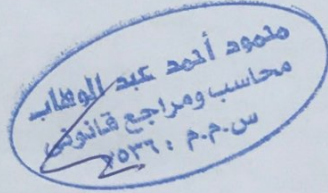 محمود أحمد عبد الوهاب
محاسب ومراجع قانونى
س.م.م : ٧٥٣٦